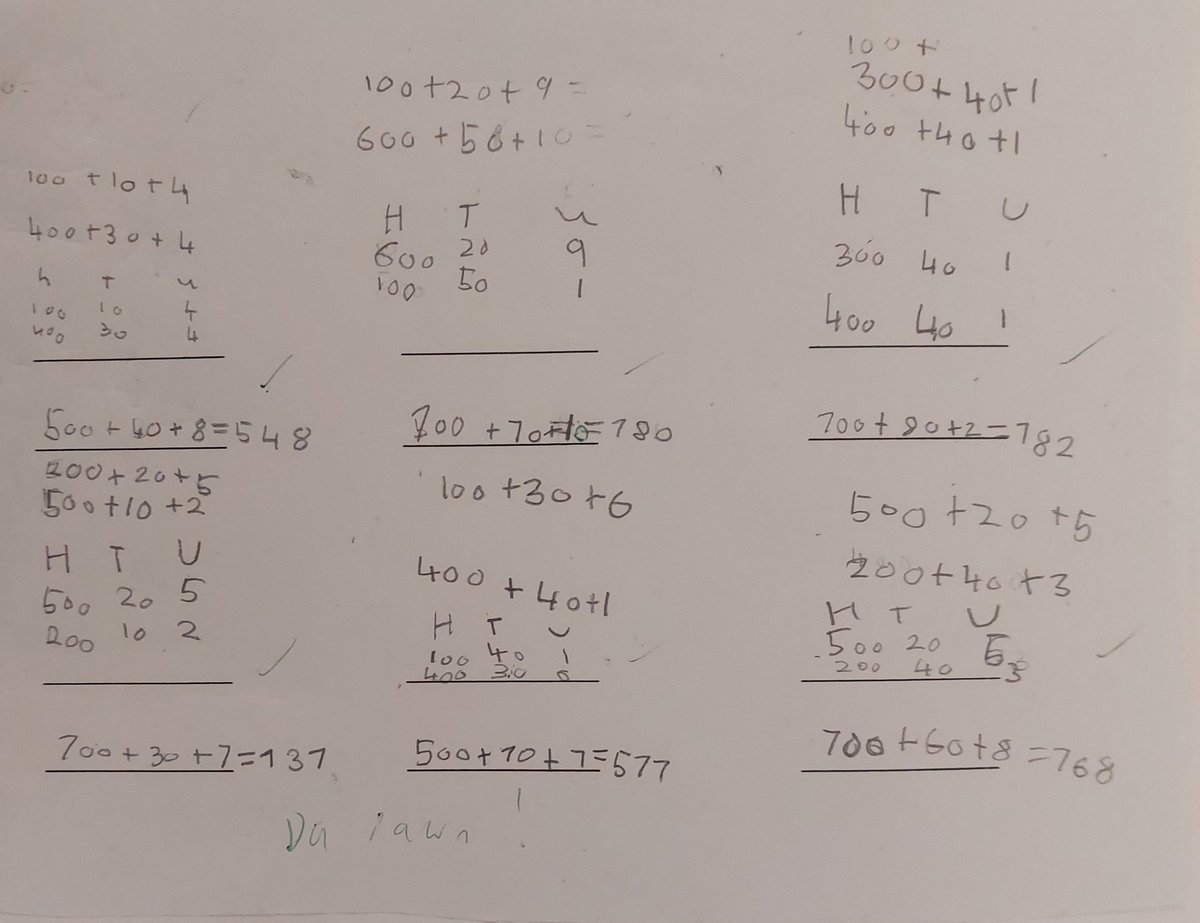 100 + 10 + 4
400 + 30 + 4
h T u
100 10 4
400 30 4
500 + 40 + 8 = 548
100 + 20 + 9 =
600 + 50 + 10 =
H T u
600 20 9
100 50 1
700 + 70 + 10 = 780
100 +
300 + 40 + 1
400 + 40 + 1
H T U
300 40 1
400 40 1
700 + 80 + 2 = 782
200 + 20 + 5
500 + 10 + 2
H T U
500 20 5
200 10 2
700 + 30 + 7 = 737
100 + 30 + 6
400 + 40 + 1
H T U
100 40 1
400 30 6
500 + 70 + 7 = 577
500 + 20 + 5
200 + 40 + 3
H T U
500 20 5
200 40 3
700 + 60 + 8 = 768
Da iawn !